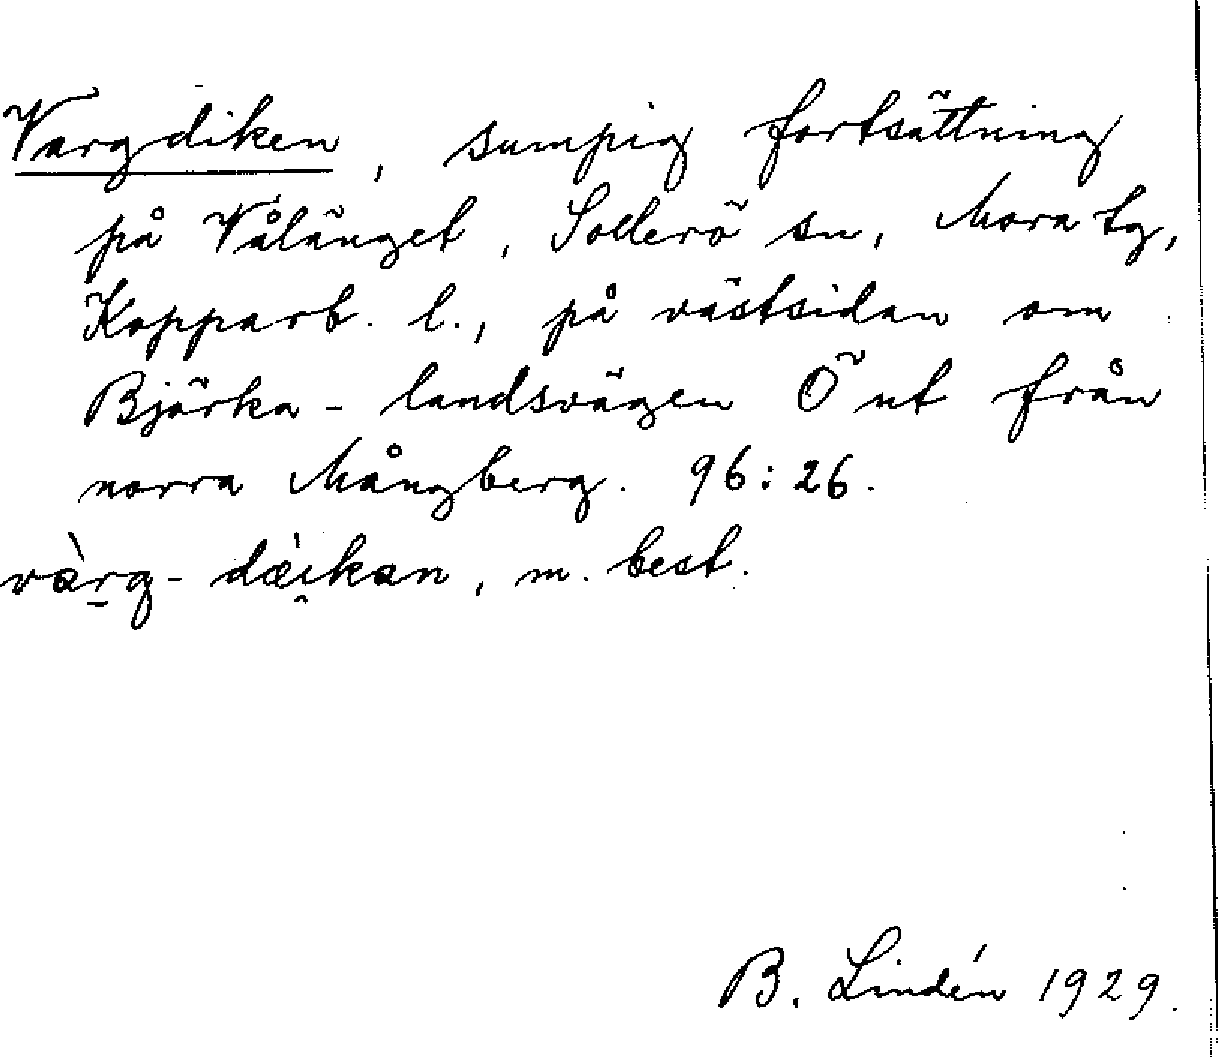 Vargdiken, sumpig fortsättning
på Vålänget, Sollerö sn, Mora tg,
Kopparb. l., på västsidan om
Björka-landsvägen Ö ut från
norra Mångberg. 96:26.
và̀rg-dæ̀i̯kan, m. best.
B. Lindén 1929.